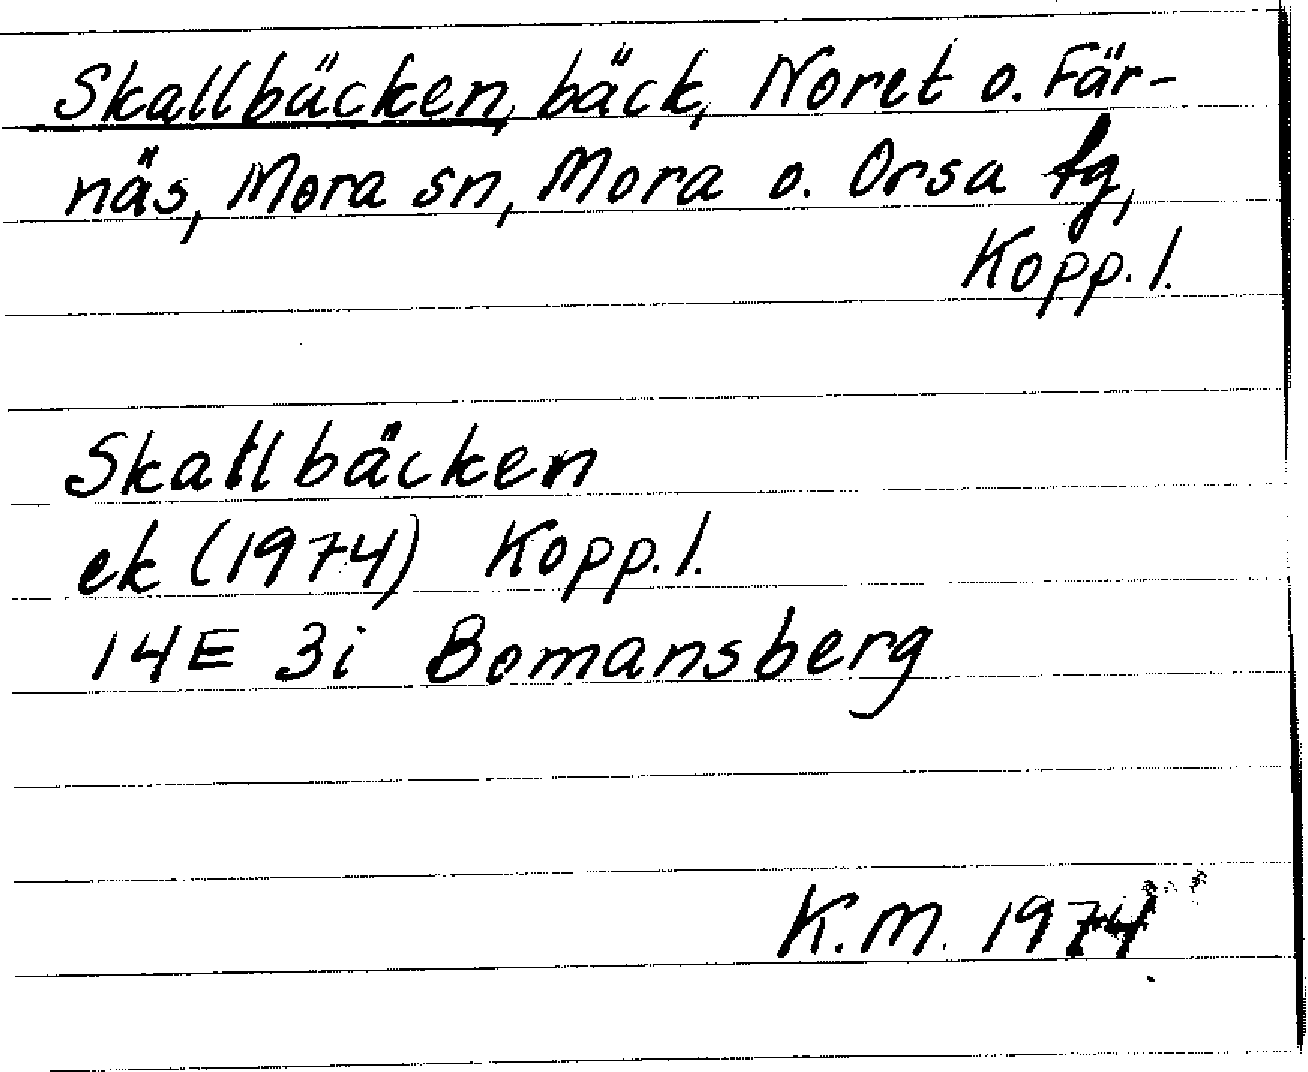 Skallbäcken, bäck, Noret o. Fär-
näs, Mora sn, Mora o. Orsa fg,
Kopp. l.
Skallbäcken
ek (1974) Kopp. l.
14E 3i Bomansberg
K.M. 1974